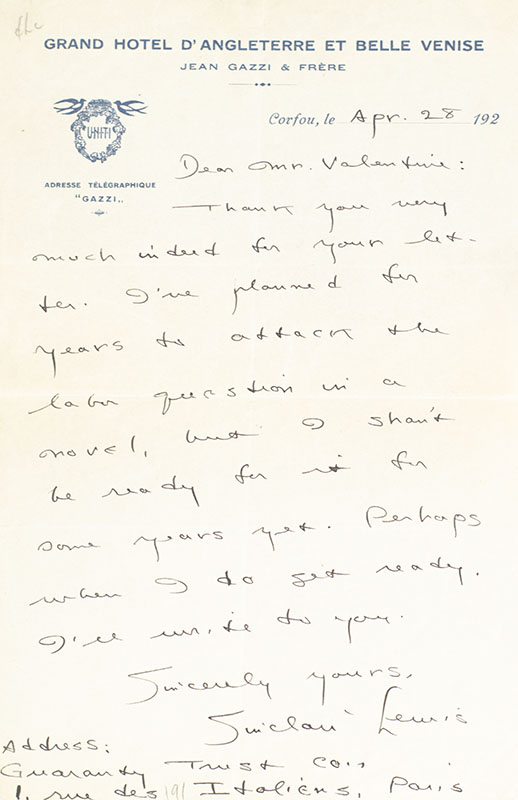 GRAND HOTEL D'ANGLETERRE ET BELLE VENISE
JEAN GAZZI & FRÈRE
UNITI
Corfou, le Apr. 28 192
ADRESSE TÉLÉGRAPHIQUE
"GAZZI„
Dear Mr. Valentine:
Thank you very
much indeed for your let-
ter. I've planned for
years to attack the
labor question in a
novel, but I shan't
be ready for it for
some years yet. Perhaps
when I do get ready,
I'll write to you.
Sincerely yours,
Sinclair Lewis
Address:
Guaranty Trust Co.,
1, rue des Italiens, Paris